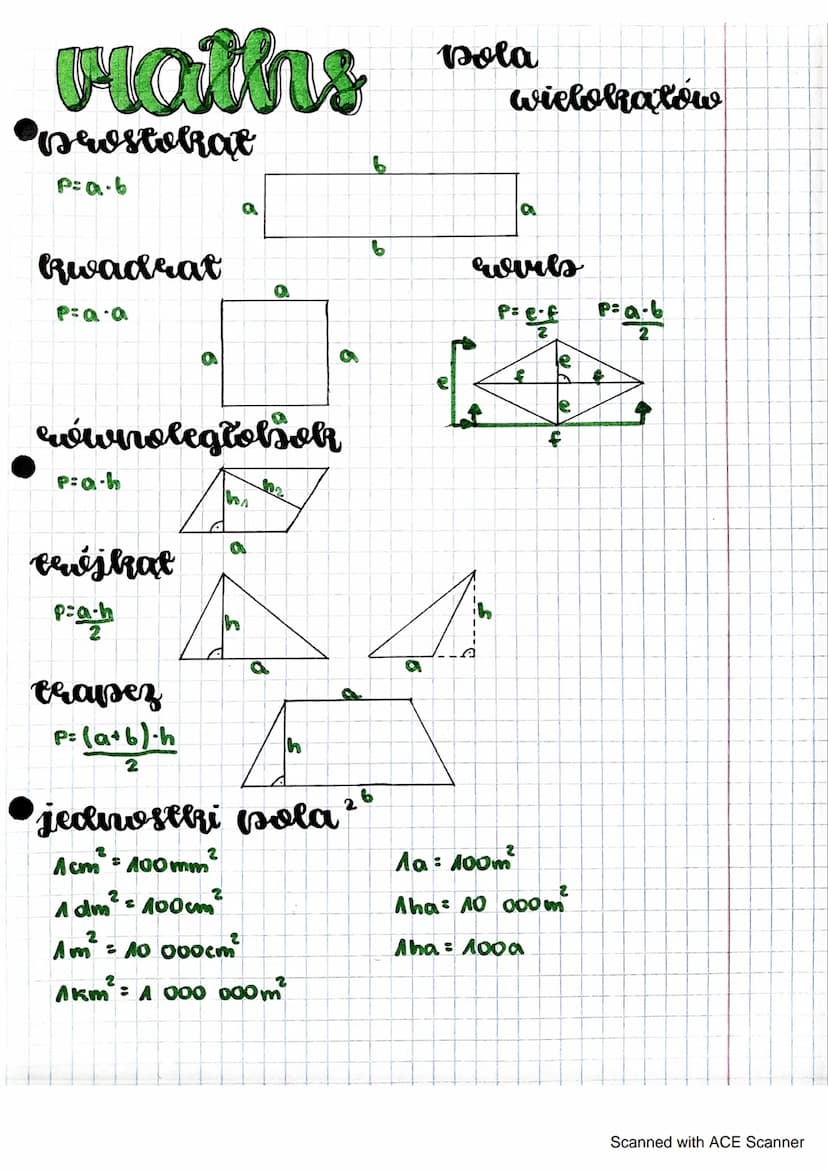 maths
pola
wielokątów
prostokąt
P=a·b
b
a
a
b
kwadrat
P=a·a
a
a
a
a
romb
P=e·f/2 P=a·b/2
e
f f
e
e
f
równoległobok
P=a·h
h1 h2
a
trójkąt
P=a·h/2
h
a
h
a
trapez
P=(a+b)·h/2
a
h
b
jednostki pola ²
1cm²=100mm²
1dm²=100cm²
1m²=10 000cm²
1km²=1 000 000m²
1a=100m²
1ha=10 000m²
1ha=100a
Scanned with ACE Scanner